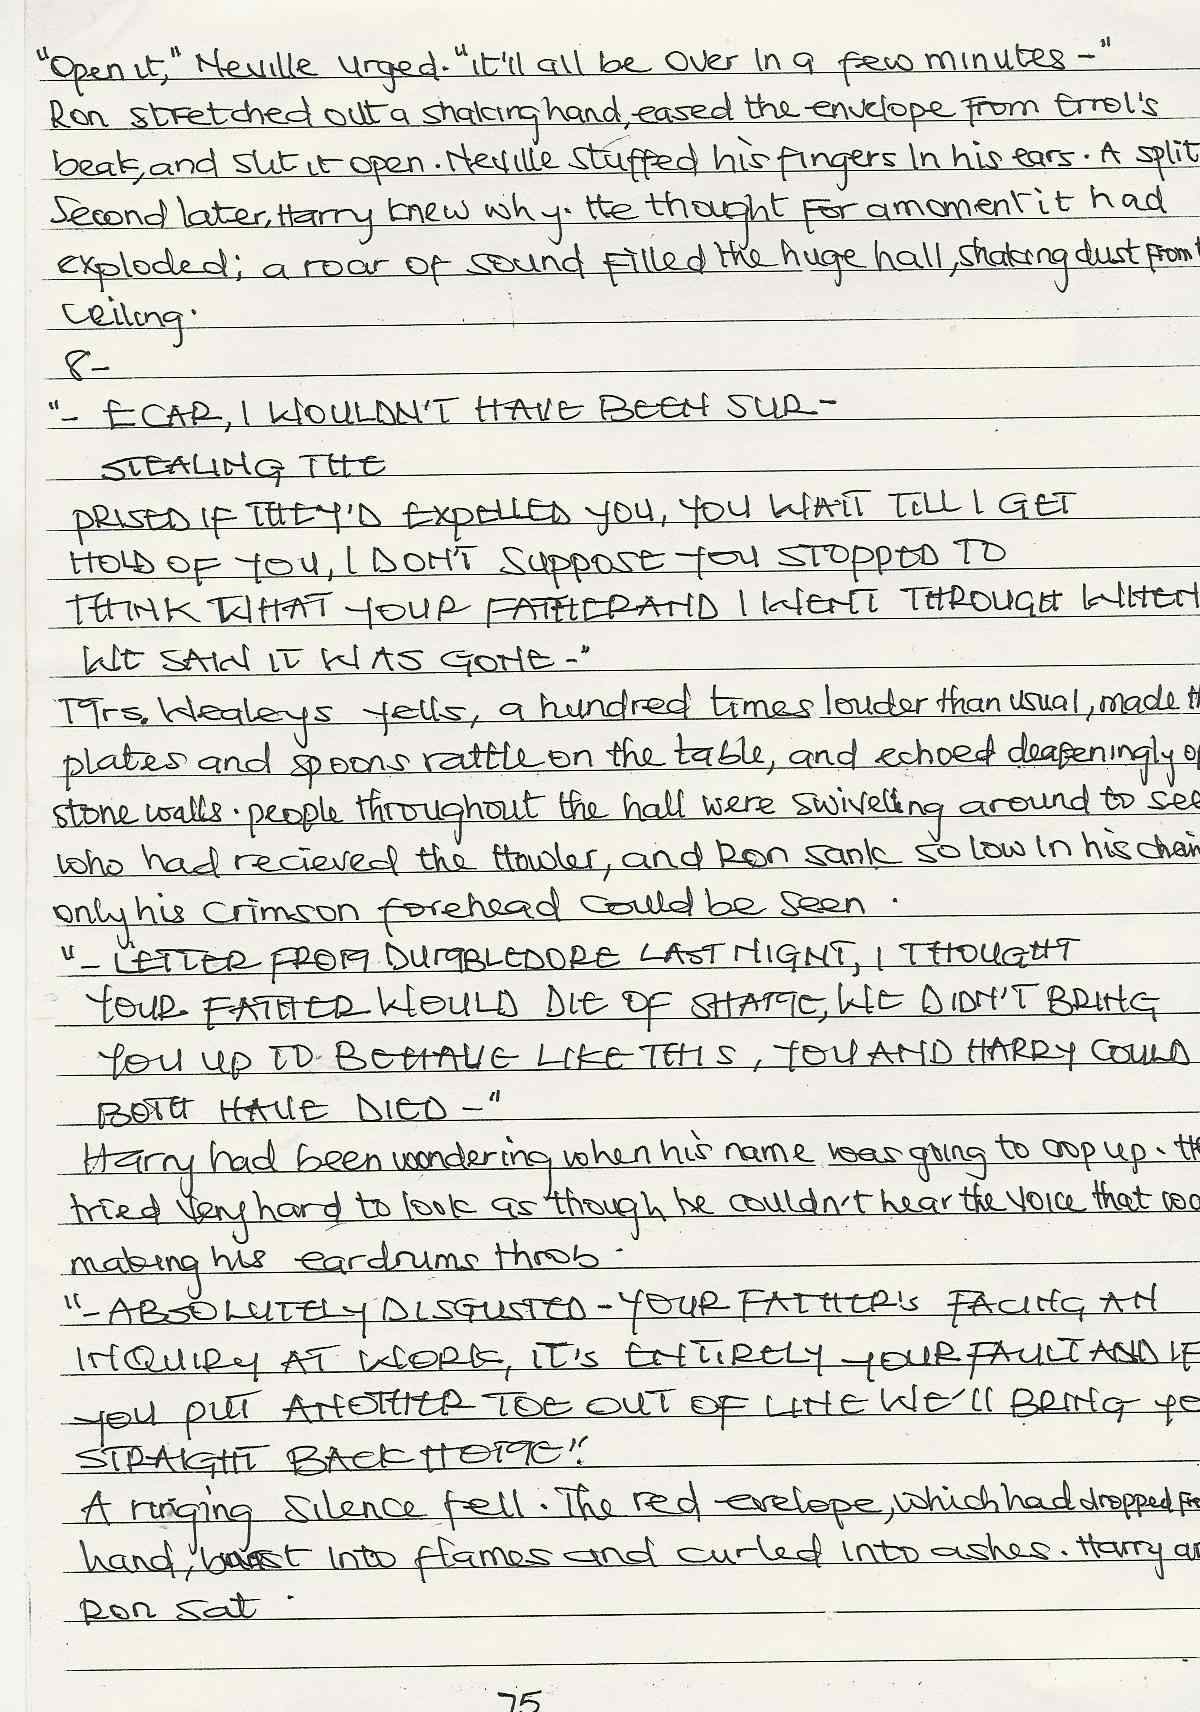 "Open it," Neville urged. "it'll all be over in a few minutes -"
Ron stretched out a shaking hand, eased the envelope from Errol's
beak, and slit it open. Neville stuffed his fingers in his ears. A split
Second later, Harry knew why. He thought for a moment it had
exploded; a roar of sound filled the huge hall, shaking dust from
ceiling.
8-
"- E CAR, I WOULDN'T HAVE BEEN SUR-
STEALING THE
PRISED IF THEY'D EXPELLED YOU, YOU WAIT TILL I GET
HOLD OF YOU, I DON'T SUPPOSE YOU STOPPED TO
THINK WHAT YOUR FATHER AND I WENT THROUGH WHEN
WE SAW IT WAS GONE -"
Mrs. Wealeys yells, a hundred times louder than usual, made th
plates and spoons rattle on the table, and echoed deafeningly of
stone walls. people throughout the hall were swiveling around to see
who had recieved the Howler, and Ron sank so low in his chair
only his crimson forehead could be seen.
"- LETTER FROM DUMBLEDORE LAST NIGHT, I THOUGHT
YOUR FATHER WOULD DIE OF SHAME, WE DIDN'T BRING
YOU UP TO BEHAVE LIKE THIS, YOU AND HARRY COULD
BOTH HAVE DIED -"
Harry had been wondering when his name was going to crop up. He
tried very hard to look as though he couldn't hear the voice that wa
making his eardrums throb.
"- ABSOLUTELY DISGUSTED - YOUR FATHER'S FACING AN
INQUIRY AT WORK, IT'S ENTIRELY YOUR FAULT AND IF
YOU PUT ANOTHER TOE OUT OF LINE WE'll BRING YO
STRAIGHT BACK HOME"
A ringing silence fell. The red envelope, which had dropped fro
hand, burst into flames and curled into ashes. Harry an
Ron sat.
75